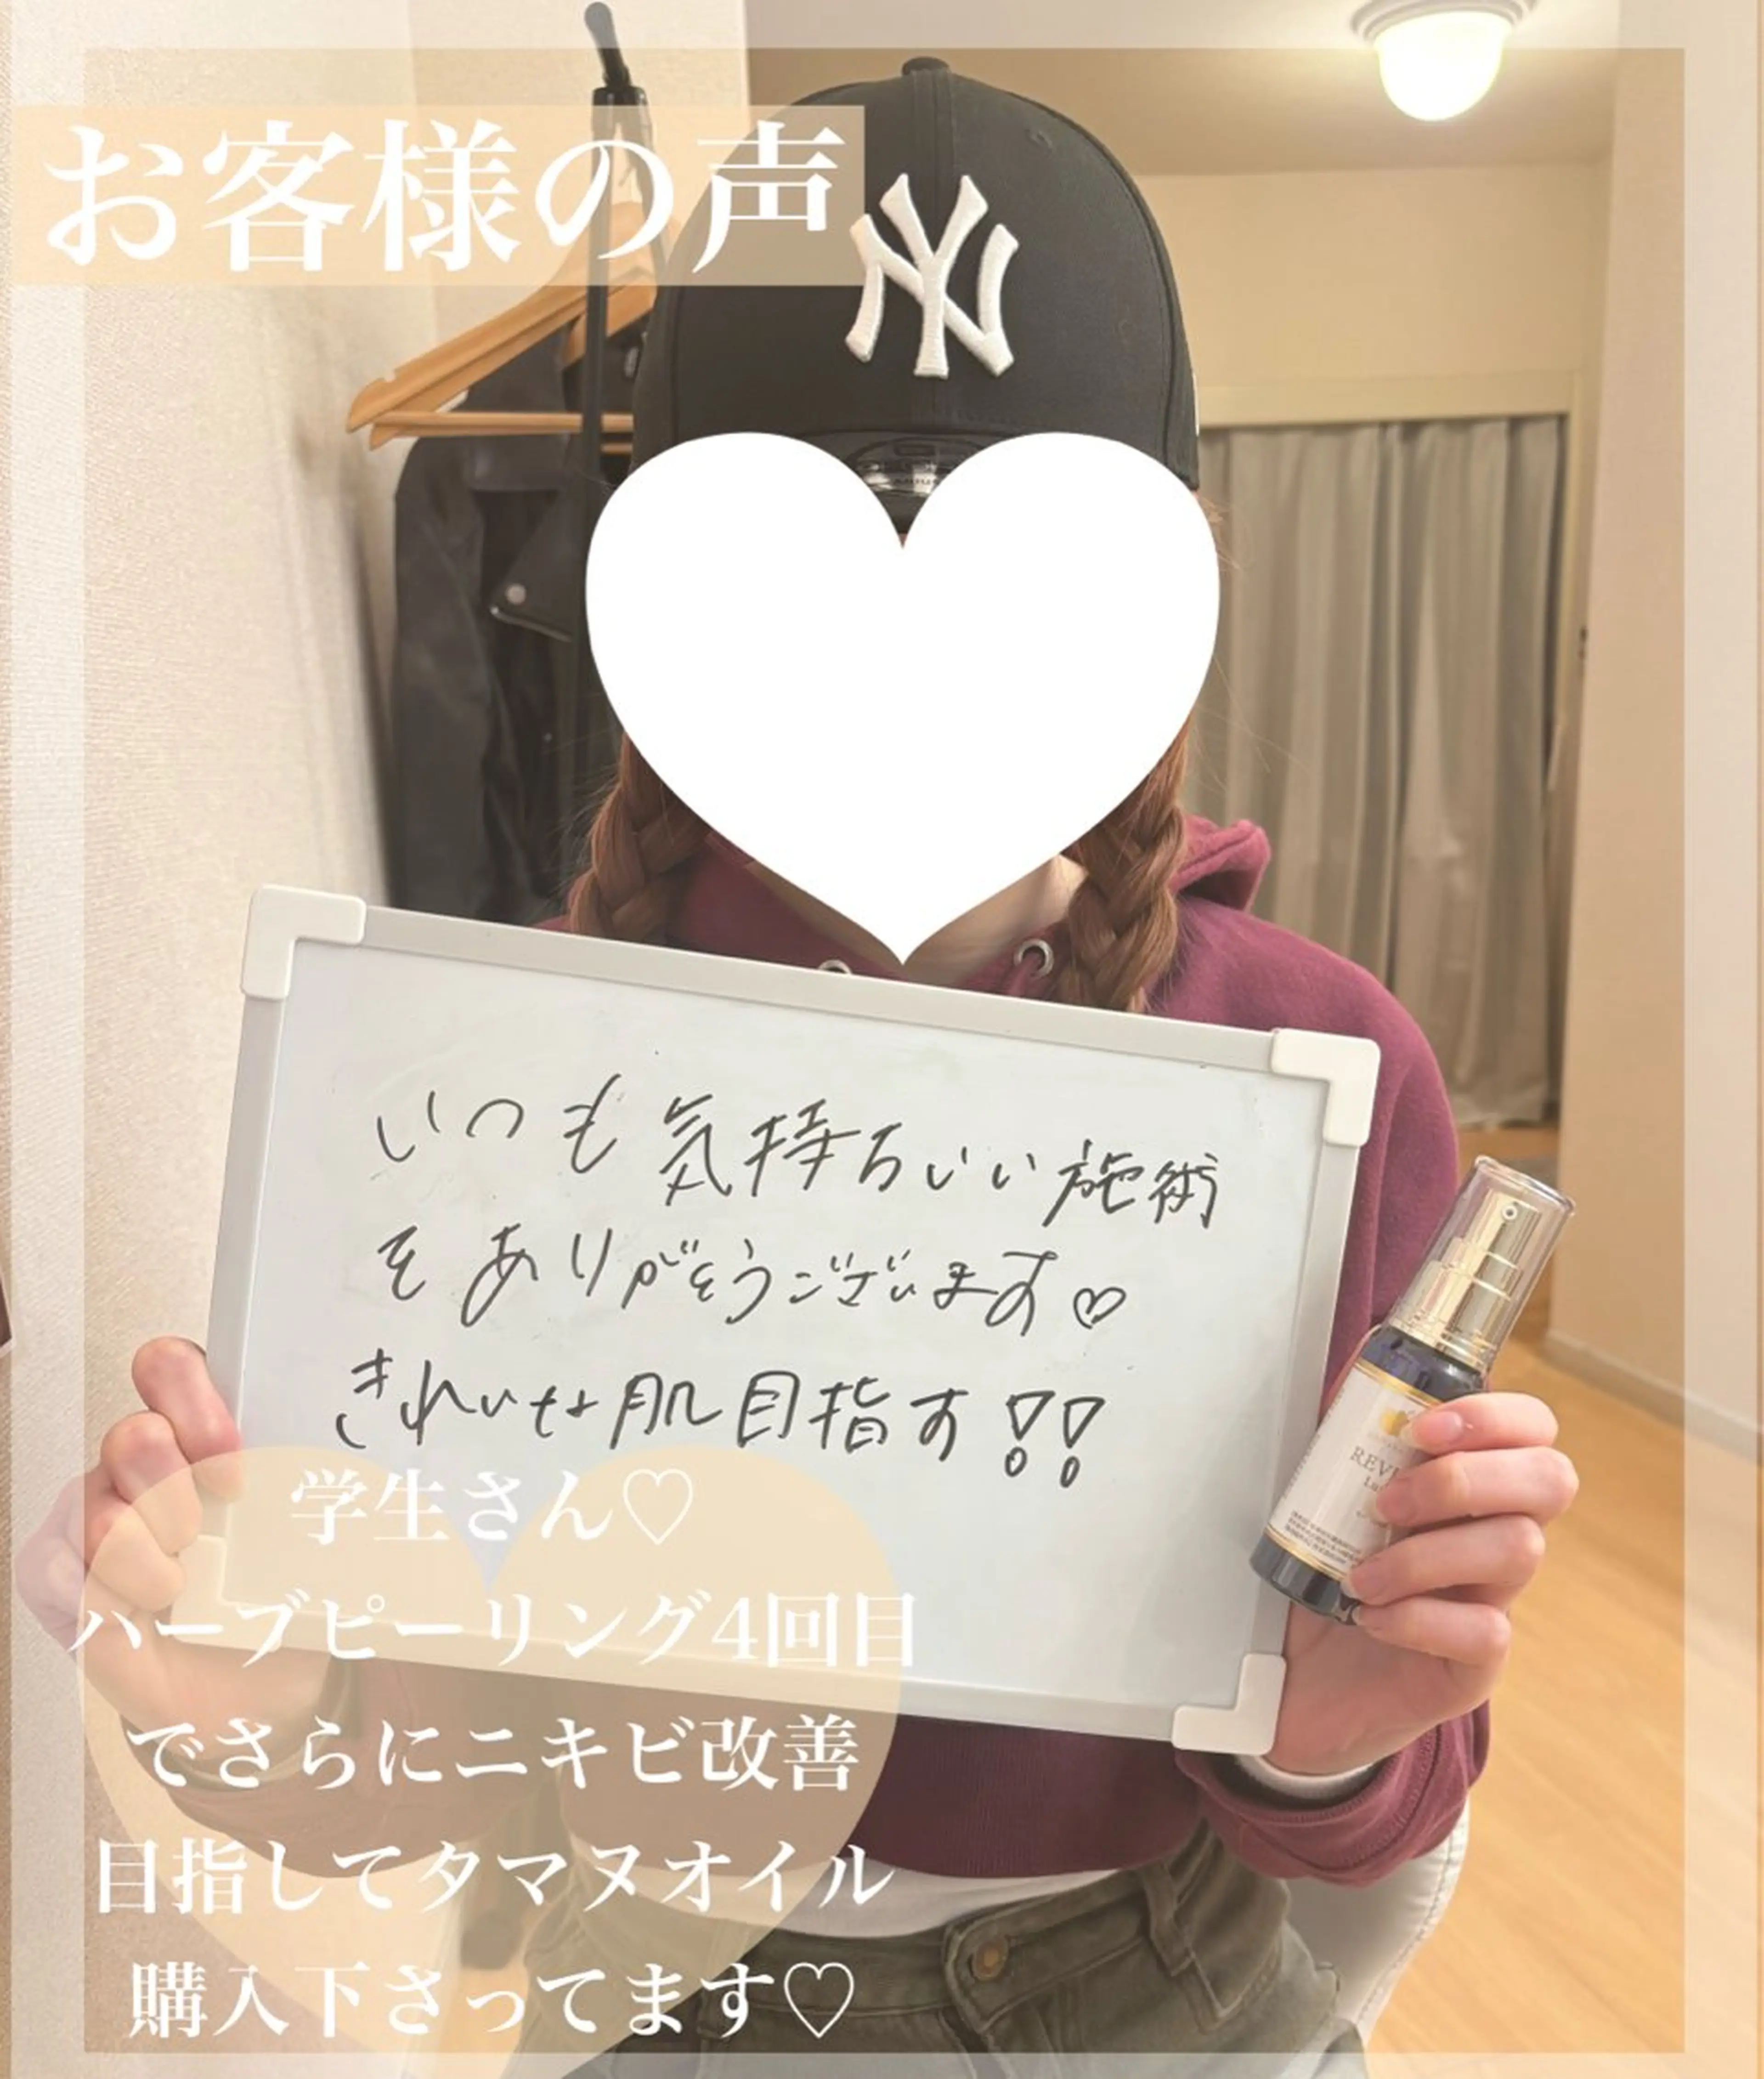 お客様の声
NY
いつも気持ちいい施術
をありがとうございます♡
きれいな肌目指す!!
学生さん♡
ハーブピーリング4回目
でさらにニキビ改善
目指してタマヌオイル
購入下さってます♡